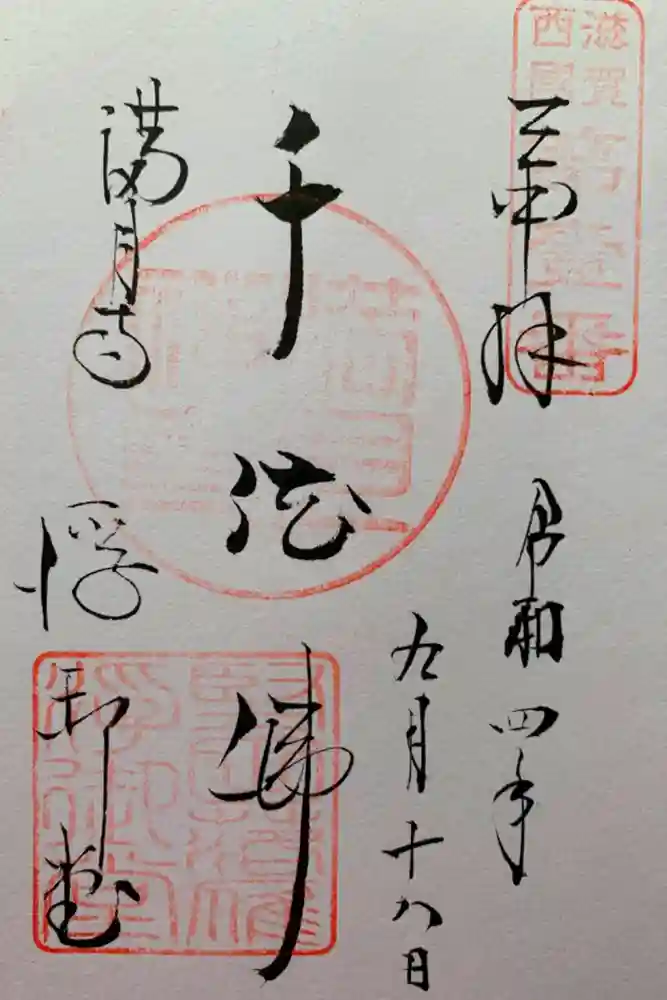 滋賀
西國
奉拝
令和四年
九月十八日
千体佛
満月寺
浮御堂
浮御堂